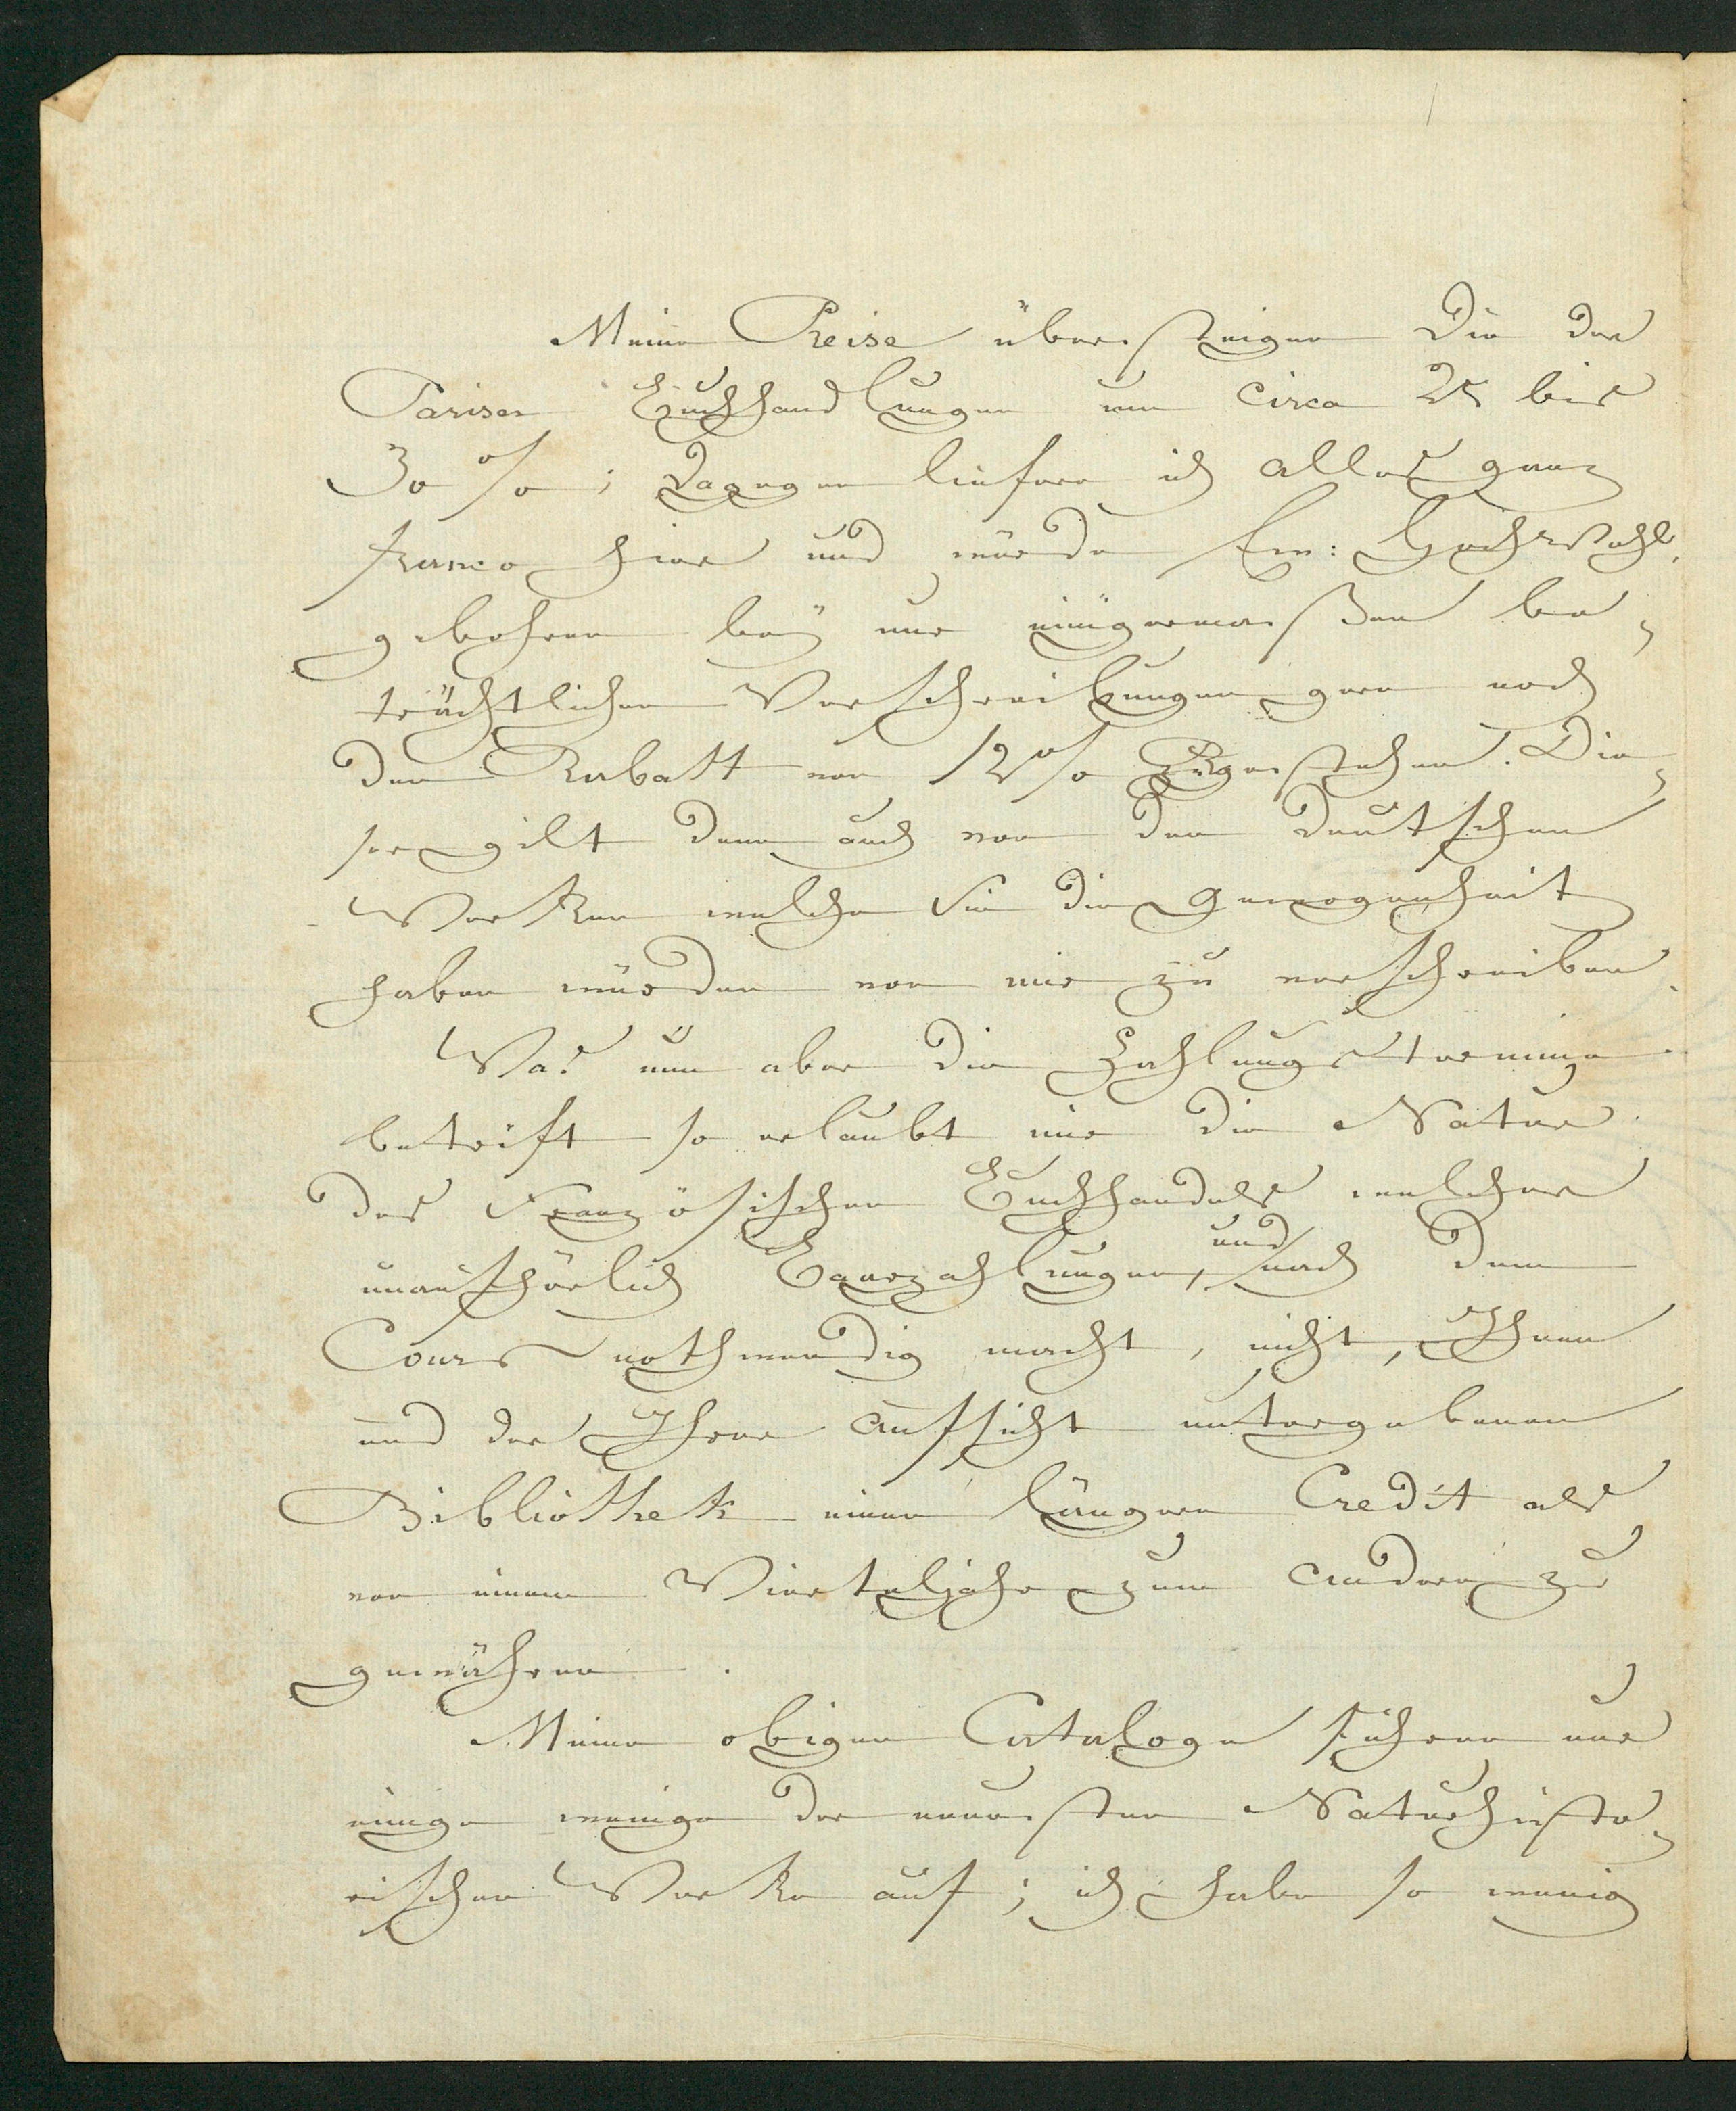 Meine Preise übersteigen die der
Pariser Buchhandlungen um circa 25 bis
30 %; dagegen liefere ich alles ganz
franco hier und würde Ew: Hochwohl-
gebohren bey nur einigermaßen be-
trächtlichen Verschreibungen gern noch
den Rabatt von 12 % zugestehen. Die-
ser gilt denn auch von den deutschen
Werken welche Sie die Gewogenheit
haben würden von mir zu verschreiben.
Was nun aber die Zahlungstermine
betrift so erlaubt mir die Natur
des Französischen Buchhandels welcher
unaufhörlich Baarzahlungen, und nach dem
Cours nothwendig macht, nicht, Ihnen
und der Ihrer Aufsicht untergebenen
Bibliothek einen längern Credit als
von einem Vierteljahr zum andern zu
gewähren.
Meine obigen Cataloge führen nur
einige wenige der neuesten Naturhisto-
rischen Werke auf; ich habe so wenig